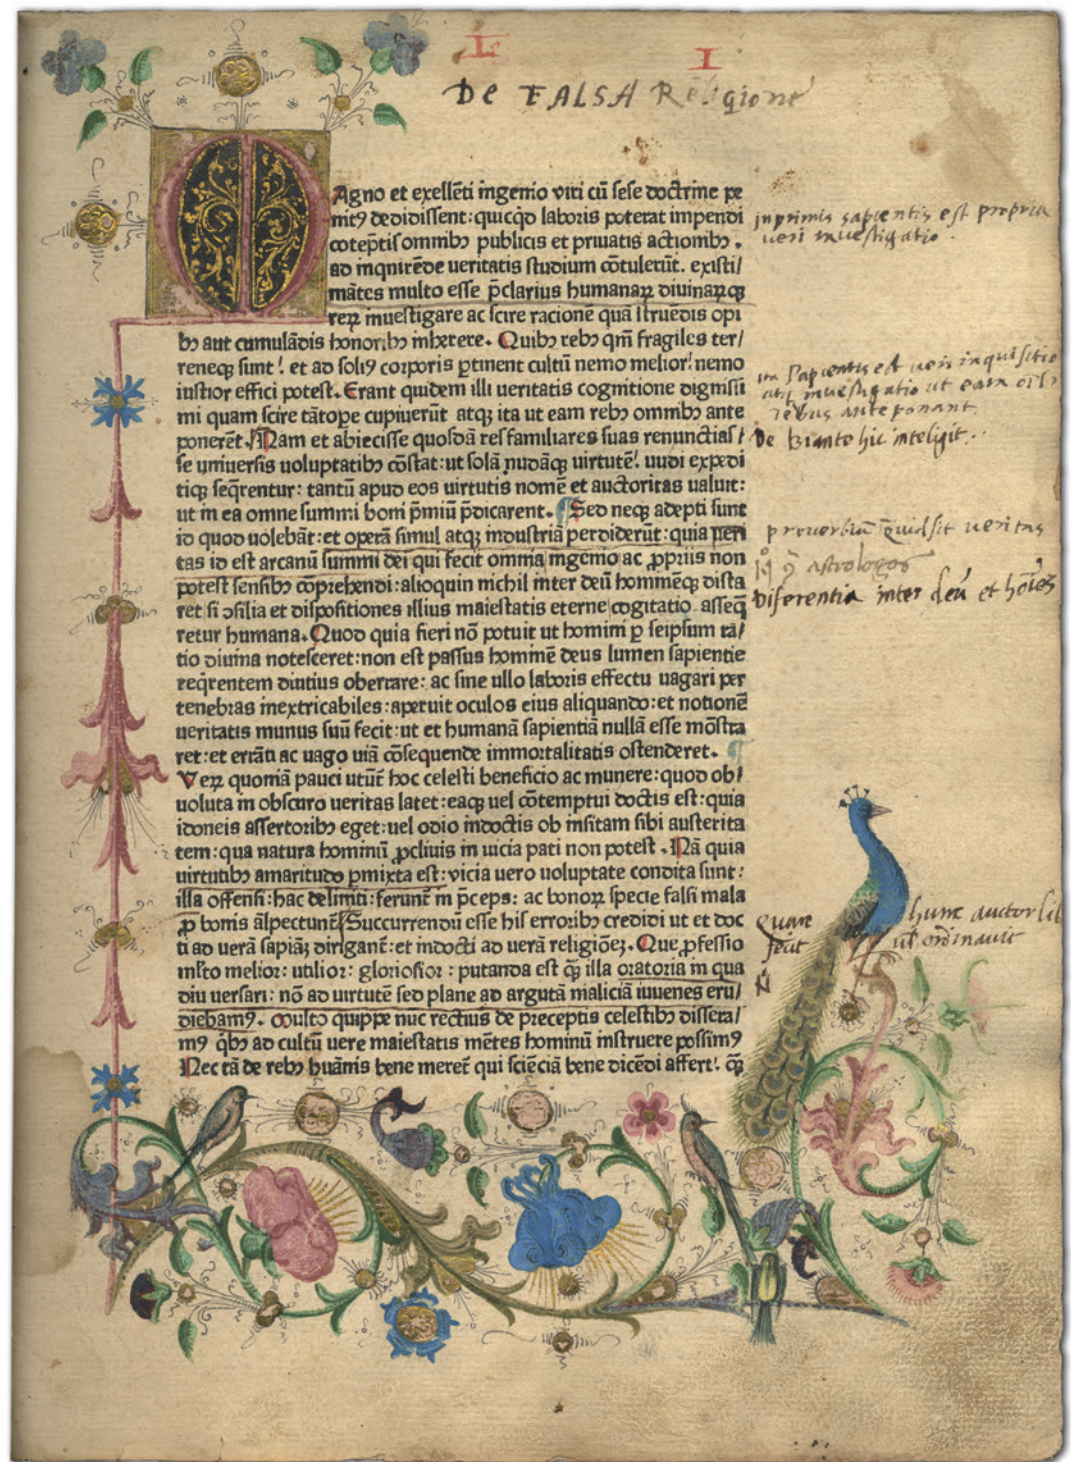 L I
De FALSA Religione
Agno et exellēti ingenio viri cū sese doctrine pe
nitꝰ dedidissent: quicq̇d laboris poterat impendi
cōtēptis omnibꝫ publicis et priuatis actionibꝫ .
ad inqnirēde ueritatis studium cōtulerūt. existi/
mātes multo esse p̄clarius humanaꝝ diuinaꝝqꝫ
reꝝ inuestigare ac scire racionē quā struēdis opi
bꝫ aut cumulādis honoribꝫ inherere. Quibꝫ rebꝫ qm̄ fragiles ter/
reneqꝫ sunt! et ad soliꝰ corporis ꝑtinent cultū nemo melior! nemo
iustior effici potest. Erant quidem illi ueritatis cognitione dignissi
mi quam scire tātoꝑe cupiuerūt atqꝫ ita ut eam rebꝫ omnibꝫ ante
ponerēt. Nam et abiecisse quosdā res familiares suas renunctias/
se uniuersis uoluptatibꝫ cōstat: ut solā nudāqꝫ uirtutē! nudi expedi
tiqꝫ seq̄rentur: tantū apud eos uirtutis nomē et auctoritas ualuit:
ut in ea omne summi boni p̄miū p̄dicarent. ¶ Sed neqꝫ adepti sunt
id quod uolebāt: et operā simul atqꝫ industriā perdiderūt: quia ueri
tas id est arcanū summi dei qui fecit omnia ingenio ac ꝓpriis non
potest sensibꝫ cōprehendi: alioquin nichil inter deū hominēqꝫ dista
ret si ↄsilia et dispositiones illius maiestatis eterne cogitatio asseq̄
retur humana. Quod quia fieri nō potuit ut homini ꝑ seipsum ra/
tio diuina notesceret: non est passus hominē deus lumen sapientie
reqrentem diutius oberrare: ac sine ullo laboris effectu uagari per
tenebras inextricabiles: aperuit oculos eius aliquando: et notionē
ueritatis munus suū fecit: ut et humanā sapientiā nullā esse mōstra
ret: et errāti ac uago uiā cōsequende immortalitatis ostenderet. ¶
Veꝝ quoniā pauci utūt̄ hoc celesti beneficio ac munere: quod ob/
uoluta in obscuro ueritas latet: eaqꝫ uel cōtemptui doctis est: quia
idoneis assertoribꝫ eget: uel odio indoctis ob insitam sibi austerita
tem: qua natura hominū ꝓcliuis in uicia pati non potest . Nā quia
uirtutibꝫ amaritudo ꝑmixta est: vicia uero uoluptate condita sunt:
illa offensi: hac deliniti: ferunt̄ in p̄ceps: ac bonoꝝ specie falsi mala
ꝓ bonis āspectunt̄ Succurrendū esse his erroribꝫ credidi ut et doc
ti ad uerā sapiāꝫ dirigant̄: et indocti ad uerā religiōeꝫ. Que ꝓfessio
mlto melior: utilior: gloriosior: putanda est qꝫ̄ illa oratoria in qua
diu uersari: nō ad uirtutē sed plane ad argutā maliciā iuuenes eru/
diebamꝰ. Multo quippe nūc rectius de preceptis celestibꝫ dissera/
mꝰ q̇bꝫ ad cultū uere maiestatis mētes hominū instruere possimꝰ
Nec tā de rebꝫ huānis bene meret̄ qui sciēciā bene dicēdi affert! qꝫ̄
inprimis sapientis est propria
ueri inuestigatio
Sapientis est ueri inquisitio
atqꝫ inuestigatio ut eam oībꝫ
rebus anteponant
De biante hic inteligit..
prouorbiū quid sit ueritas
astrologos
Diferentia inter deū et hoīes
quare hunc auctor lib
fecit ul ordinauit